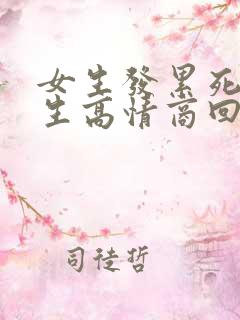 女生發累死
生高情商回
司徒哲